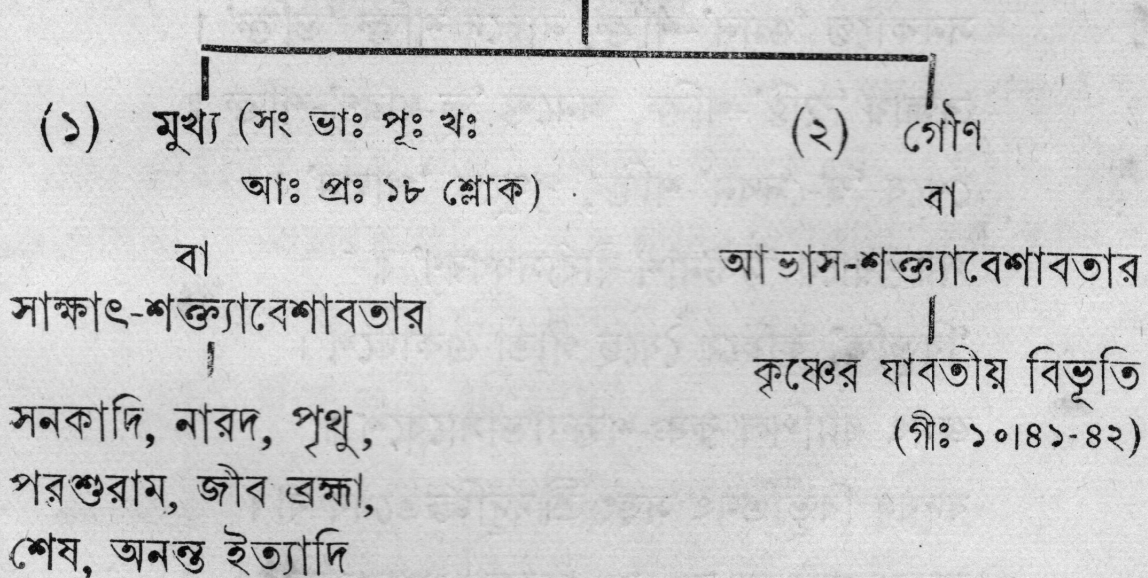 (১) মুখ্য (সং ভাঃ পূঃ খঃ
আঃ প্রঃ ১৮ শ্লোক)
বা
সাক্ষাৎ-শক্ত্যাবেশাবতার
সনকাদি, নারদ, পৃথু,
পরশুরাম, জীব ব্রহ্মা,
শেষ, অনন্ত ইত্যাদি
(২) গৌণ
বা
আভাস-শক্ত্যাবেশাবতার
কৃষ্ণের যাবতীয় বিভূতি
(গীঃ ১০।৪১-৪২)